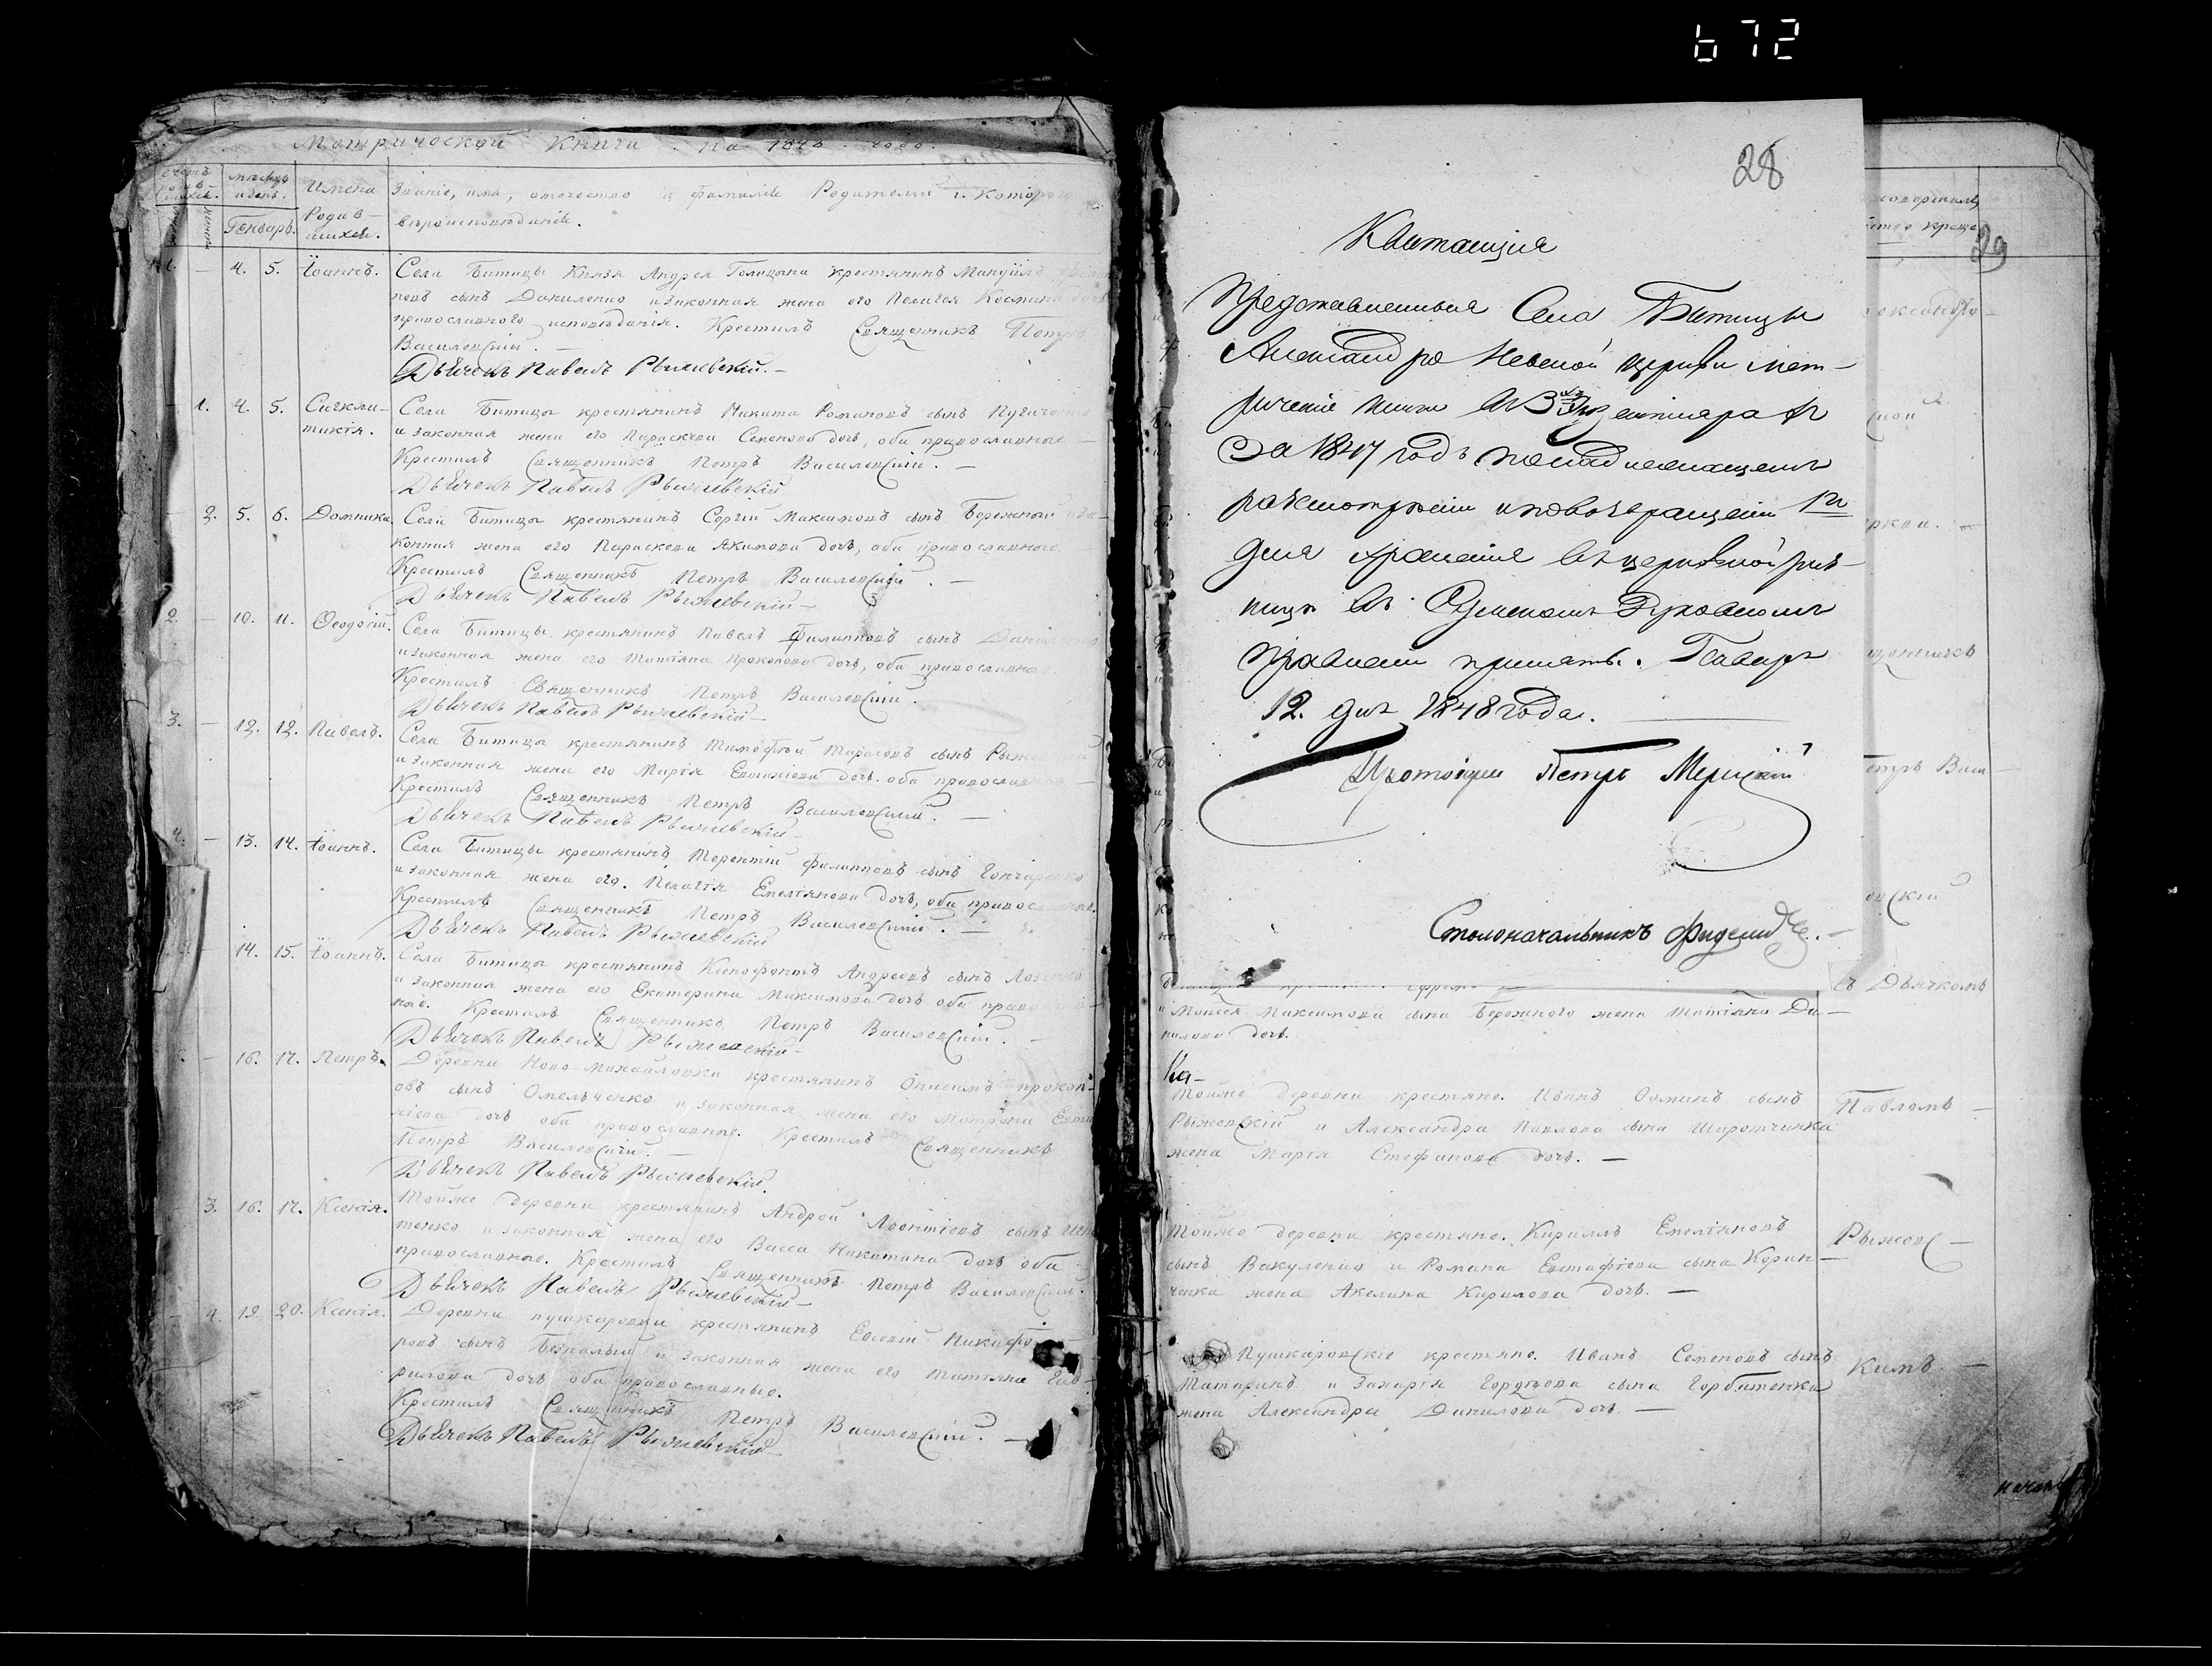 672
Метрической Книги на 184 года.
счетъ родив-шихся.
мѣсяцъ и день.
Генварь.
Имена Родив-шихся.
Званіе, имя, отечество и фамилія Родителей и котораго
вѣроисповѣданія.
1. — 4. 5. Іоаннъ. Села Битицы Князя Андрея Голицына крестьянинъ Мануйлъ
повъ сынъ Даниленко и законная жена его Пелагея Космина дочь
православнаго исповѣданія. Крестилъ Священникъ Петръ
Василевскій. —
Дьячекъ Павелъ Рыжевскій. —
— 1. 4. 5. Сигкли-тикія. Села Битицы крестьянинъ Никита Романовъ сынъ
и законная жена его Параскева Семенова дочь, оба православные —
Крестилъ Священникъ Петръ Василевскій. —
Дьячекъ Павелъ Рыжевскій
— 2. 5. 6. Домника. Села Битицы крестьянинъ Сергій Максимовъ сынъ Бережный и за-
конная жена его Параскева Якимова дочь, оба православные.
Крестилъ Священникъ Петръ Василевскій. —
Дьячекъ Павелъ Рыжевскій —
2. — 10. 11. Ѳеодосій. Села Битицы крестьянинъ Павелъ Филипповъ сынъ
и законная жена его Татіяна Прокопова дочь, оба православные.
Крестилъ Священникъ Петръ Василевскій.
Дьячекъ Павелъ Рыжевскій —
3. — 12. 12. Павелъ. Села Битицы крестьянинъ Тимофѣй Тарасовъ сынъ
и законная жена его Марія Евтихіева дочь. оба православные —
Крестилъ Священникъ Петръ Василевскій. —
Дьячекъ Павелъ Рыжевскій —
4. — 13. 14. Іоаннъ. Села Битицы крестьянинъ Терентій Филипповъ сынъ Гончаренко
и законная жена его. Пелагія Емеліянова дочь, оба православные.
Крестилъ Священникъ Петръ Василевскій. —
Дьячекъ Павелъ Рыжевскій
— 14. 15. Іоаннъ. Села Битицы крестьянинъ Ксенофонтъ Андреевъ сынъ
и законная жена его Екатерина Максимова дочь оба православ-
ные. Крестилъ Священникъ Петръ Василевскій. —
Дьячекъ Павелъ Рыжевскій —
— 16. 17. Петръ. Деревни Ново-Михайловки крестьянинъ Онисимъ Прокоп-
овъ сынъ Омельченко и законная жена его Матрона Евти-
хіева дочь оба православные. Крестилъ Священникъ
Петръ Василевскій. —
Дьячекъ Павелъ Рыжевскій.
3. 16. 17. Ксенія. Тойже деревни крестьянинъ Андрей Леонтіевъ сынъ
тенко и законная жена его Васса Никитина дочь оба
православные. Крестилъ Священникъ Петръ Василевскій.
Дьячекъ Павелъ Рыжевскій —
— 4. 19. 20. Ксенія. Деревни Пушкаровки крестьянинъ Евсевій Никифо-
ровъ сынъ Безпалый и законная жена его Татіяна Гав-
рилова дочь оба православные.
Крестилъ Священникъ Петръ Василевскій. —
Дьячекъ Павелъ Рыжевскій —
28
Квитанція
Представленныя Села Битицы
Александро Невской церкви мет-
рическіе книги въ 3хъ екземплярахъ
За 1847 годъ по надлежащемъ
разсмотреніи и по возвращеніи 1й
для храненія въ церковной риз-
ницѣ въ Сумскомъ Духовномъ
Правленіи приняты. Генваря
12. дня 1848 года. —
Протоіерей Петръ
Столоначальникъ
29
и Моѵсея Максимова сына Бережнаго жена Татіяна Да-
нилова дочь.
Тойже деревни крестьяне. Иванъ Фоминъ сынъ
Рыжевскій и Александра Павлова сына Широтченка
жена Марія Стефанова дочь. —
Тойже деревни крестьяне. Кириллъ Емеліяновъ
сынъ Вакуленко и Романа Евстафіева сына Коран-
ченка жена Акелина Кирилова дочь. —
Пушкаровскіе крестьяне. Иванъ Семеновъ сынъ
Татаринъ и Захарія Гордѣева сына Горбатенка
жена Александра Данилова дочь. —
ександро-
щенникъ
етръ Васи-
овскій
съ Дьячкомъ
Павломъ —
Рыжевс —
кимъ. —